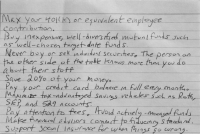 Max your 401(k) or equivalent employee
contribution.
Buy inexpensive, well-diversified mutual funds such
as well-chosen target date funds.
Never buy or sell individual securities. The person on
the other side of the table knows more than you do
about their stuff.
Save 20% of your money.
Pay your credit card balance in full every month.
Maximize tax-advantaged savings vehicles such as Roth,
SEP, and 529 accounts.
Pay attention to fees. Avoid actively managed funds.
Make financial advisors commit to fiduciary standard.
Support social insurance for when things go wrong.